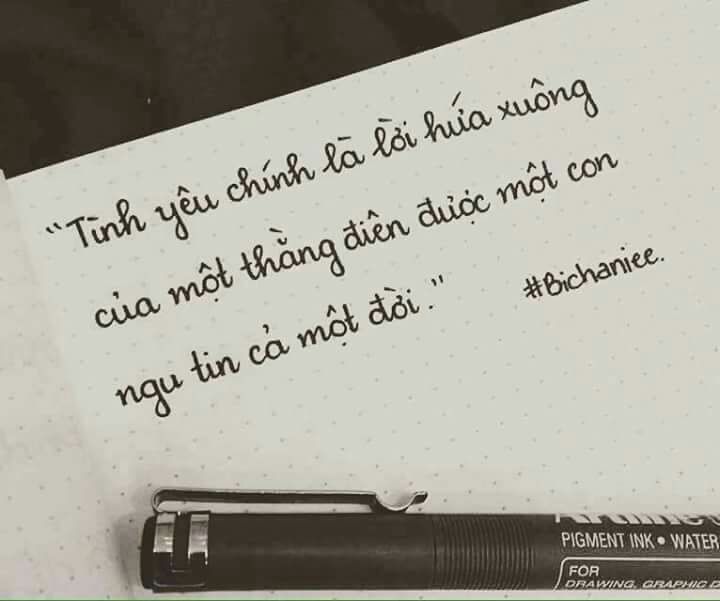 "Tình yêu chính là lời hứa xuông
của một thằng điên được một con
ngu tin cả một đời."
#Bichaniee.
PIGMENT INK • WATER
FOR
DRAWING, GRAPHIC D